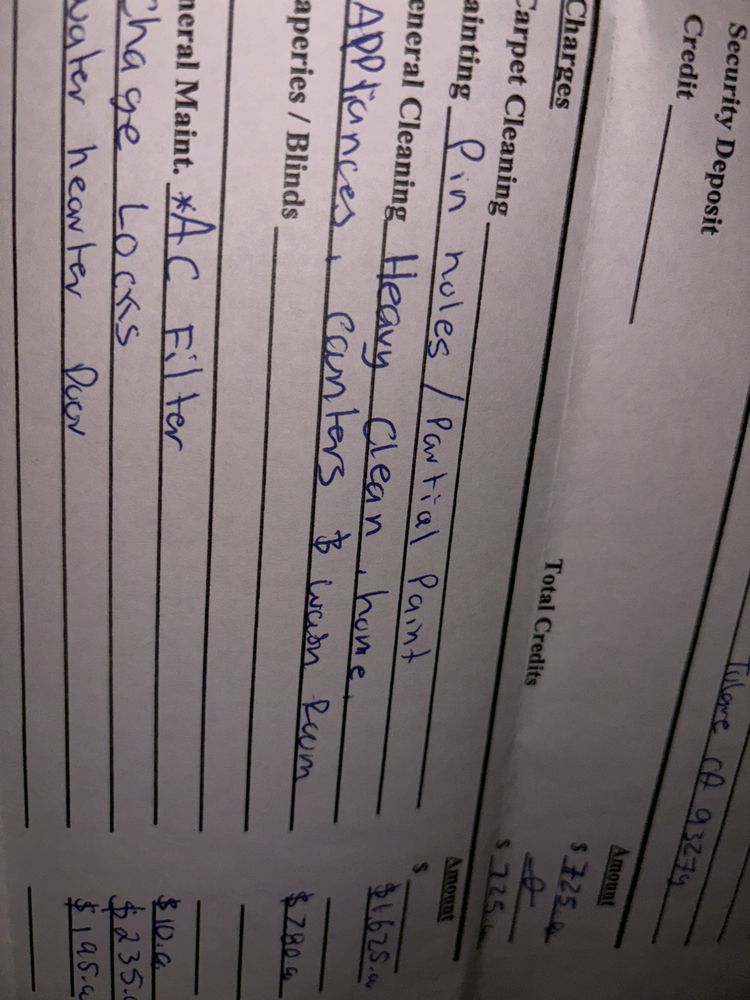 Tulare CA 93274
Amount
Security Deposit $ 725.00
Credit
Total Credits $ 725.00
Charges Amount
Carpet Cleaning $
ainting Pin holes / Partial Paint $1,625.00
eneral Cleaning Heavy Clean, home,
APPliances, Counters & wash Room $780.00
aperies / Blinds
neral Maint. *AC Filter $10.00
Change Locks $235.
water hearter Door $195.00